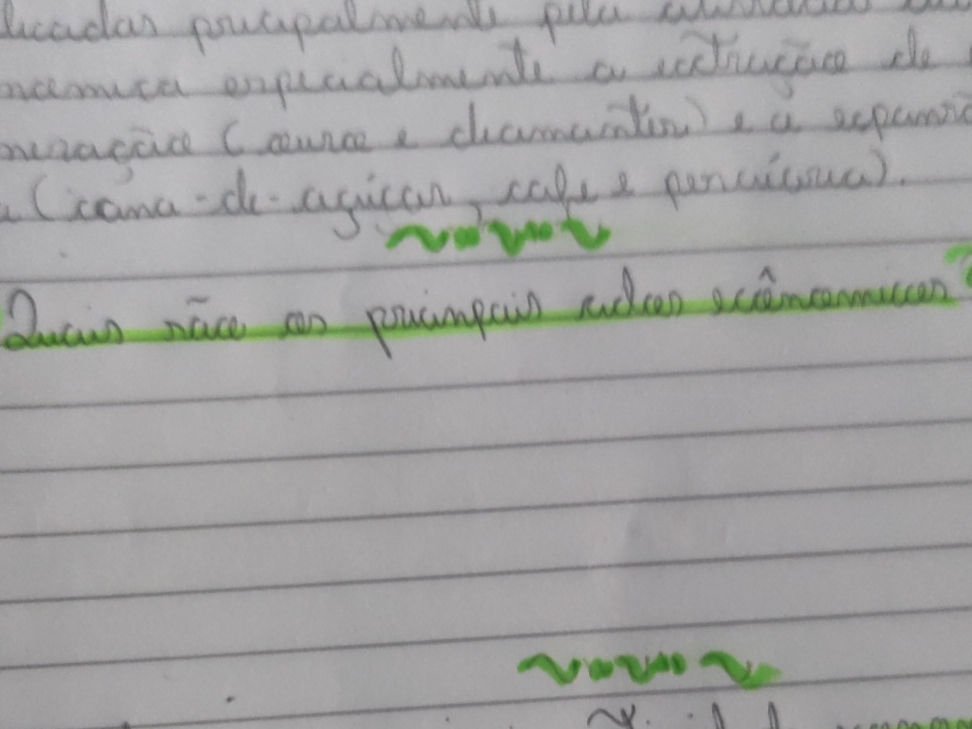 principalmente pela
especialmente a extração de
mineração (ouro e diamantes) e a expansã
(cana-de-açúcar, café e pecuária).
Quais são os principais ciclos econômicos?